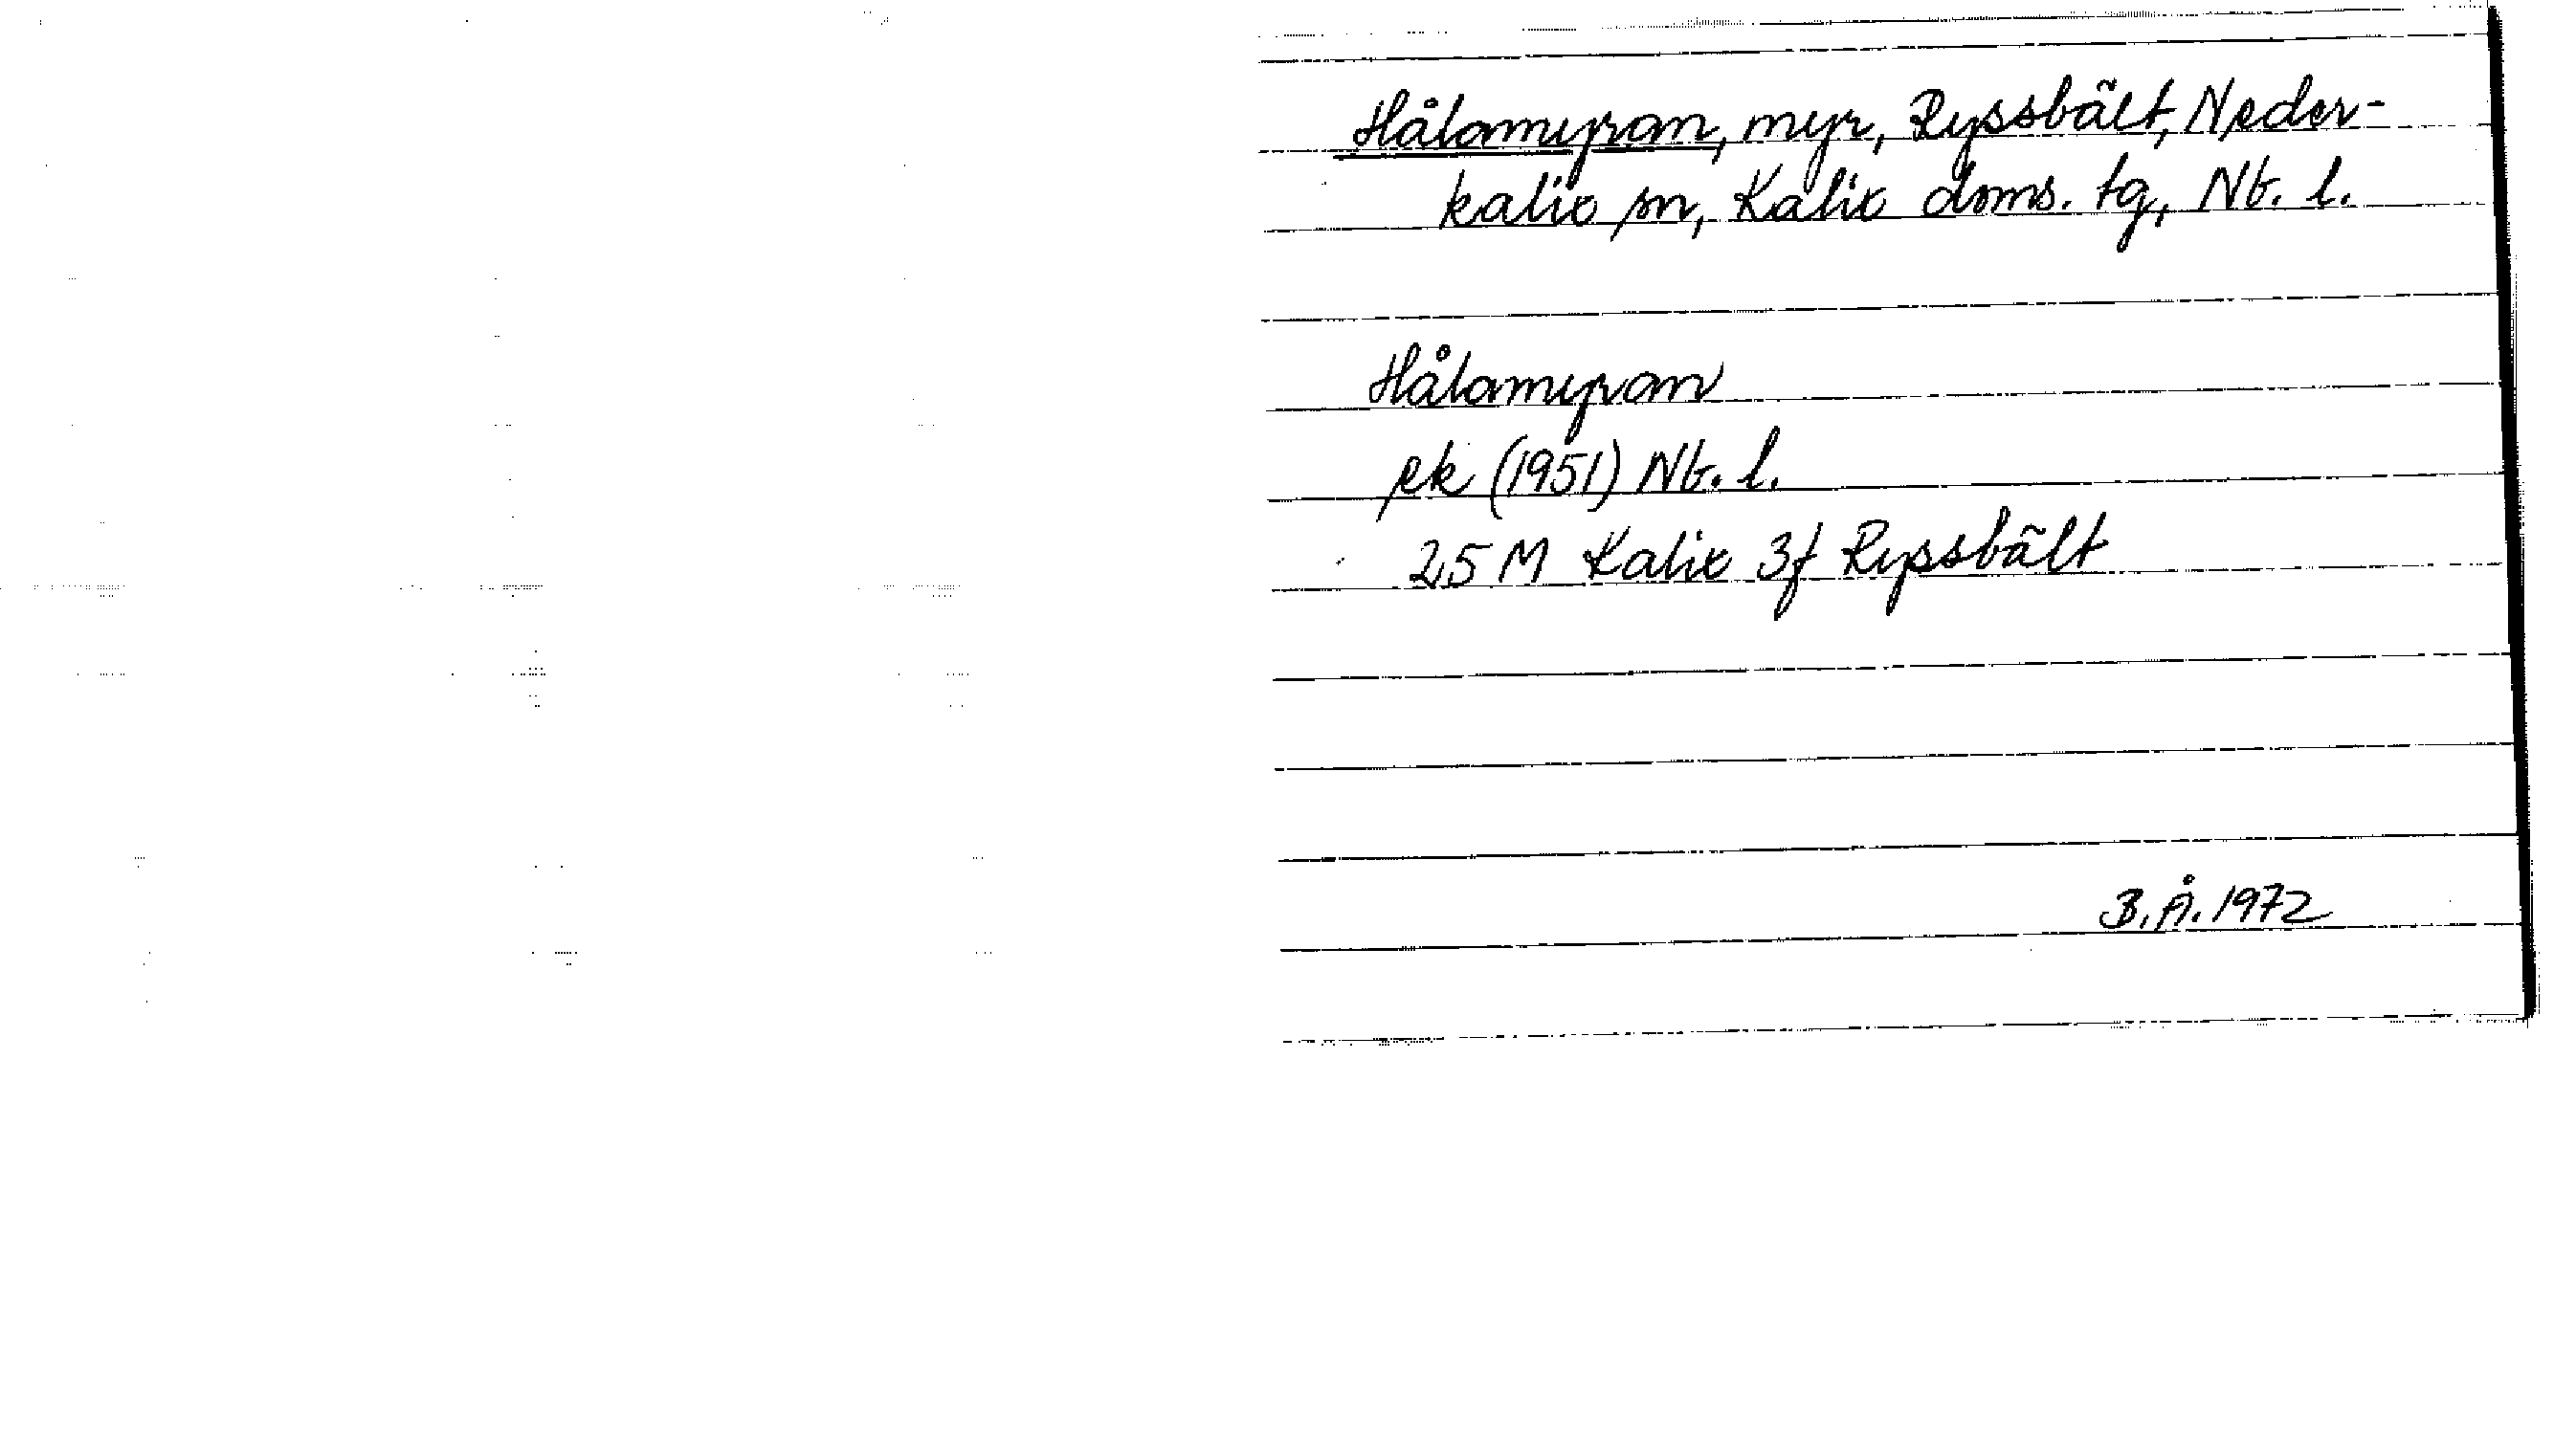 Hålamyran, myr, Ryssbält, Neder-
kalix sn, Kalix doms. tg, Nb. l.
Hålamyran
ek (1951) Nb. l.
25 M Kalix 3f Ryssbält
B.Å. 1972